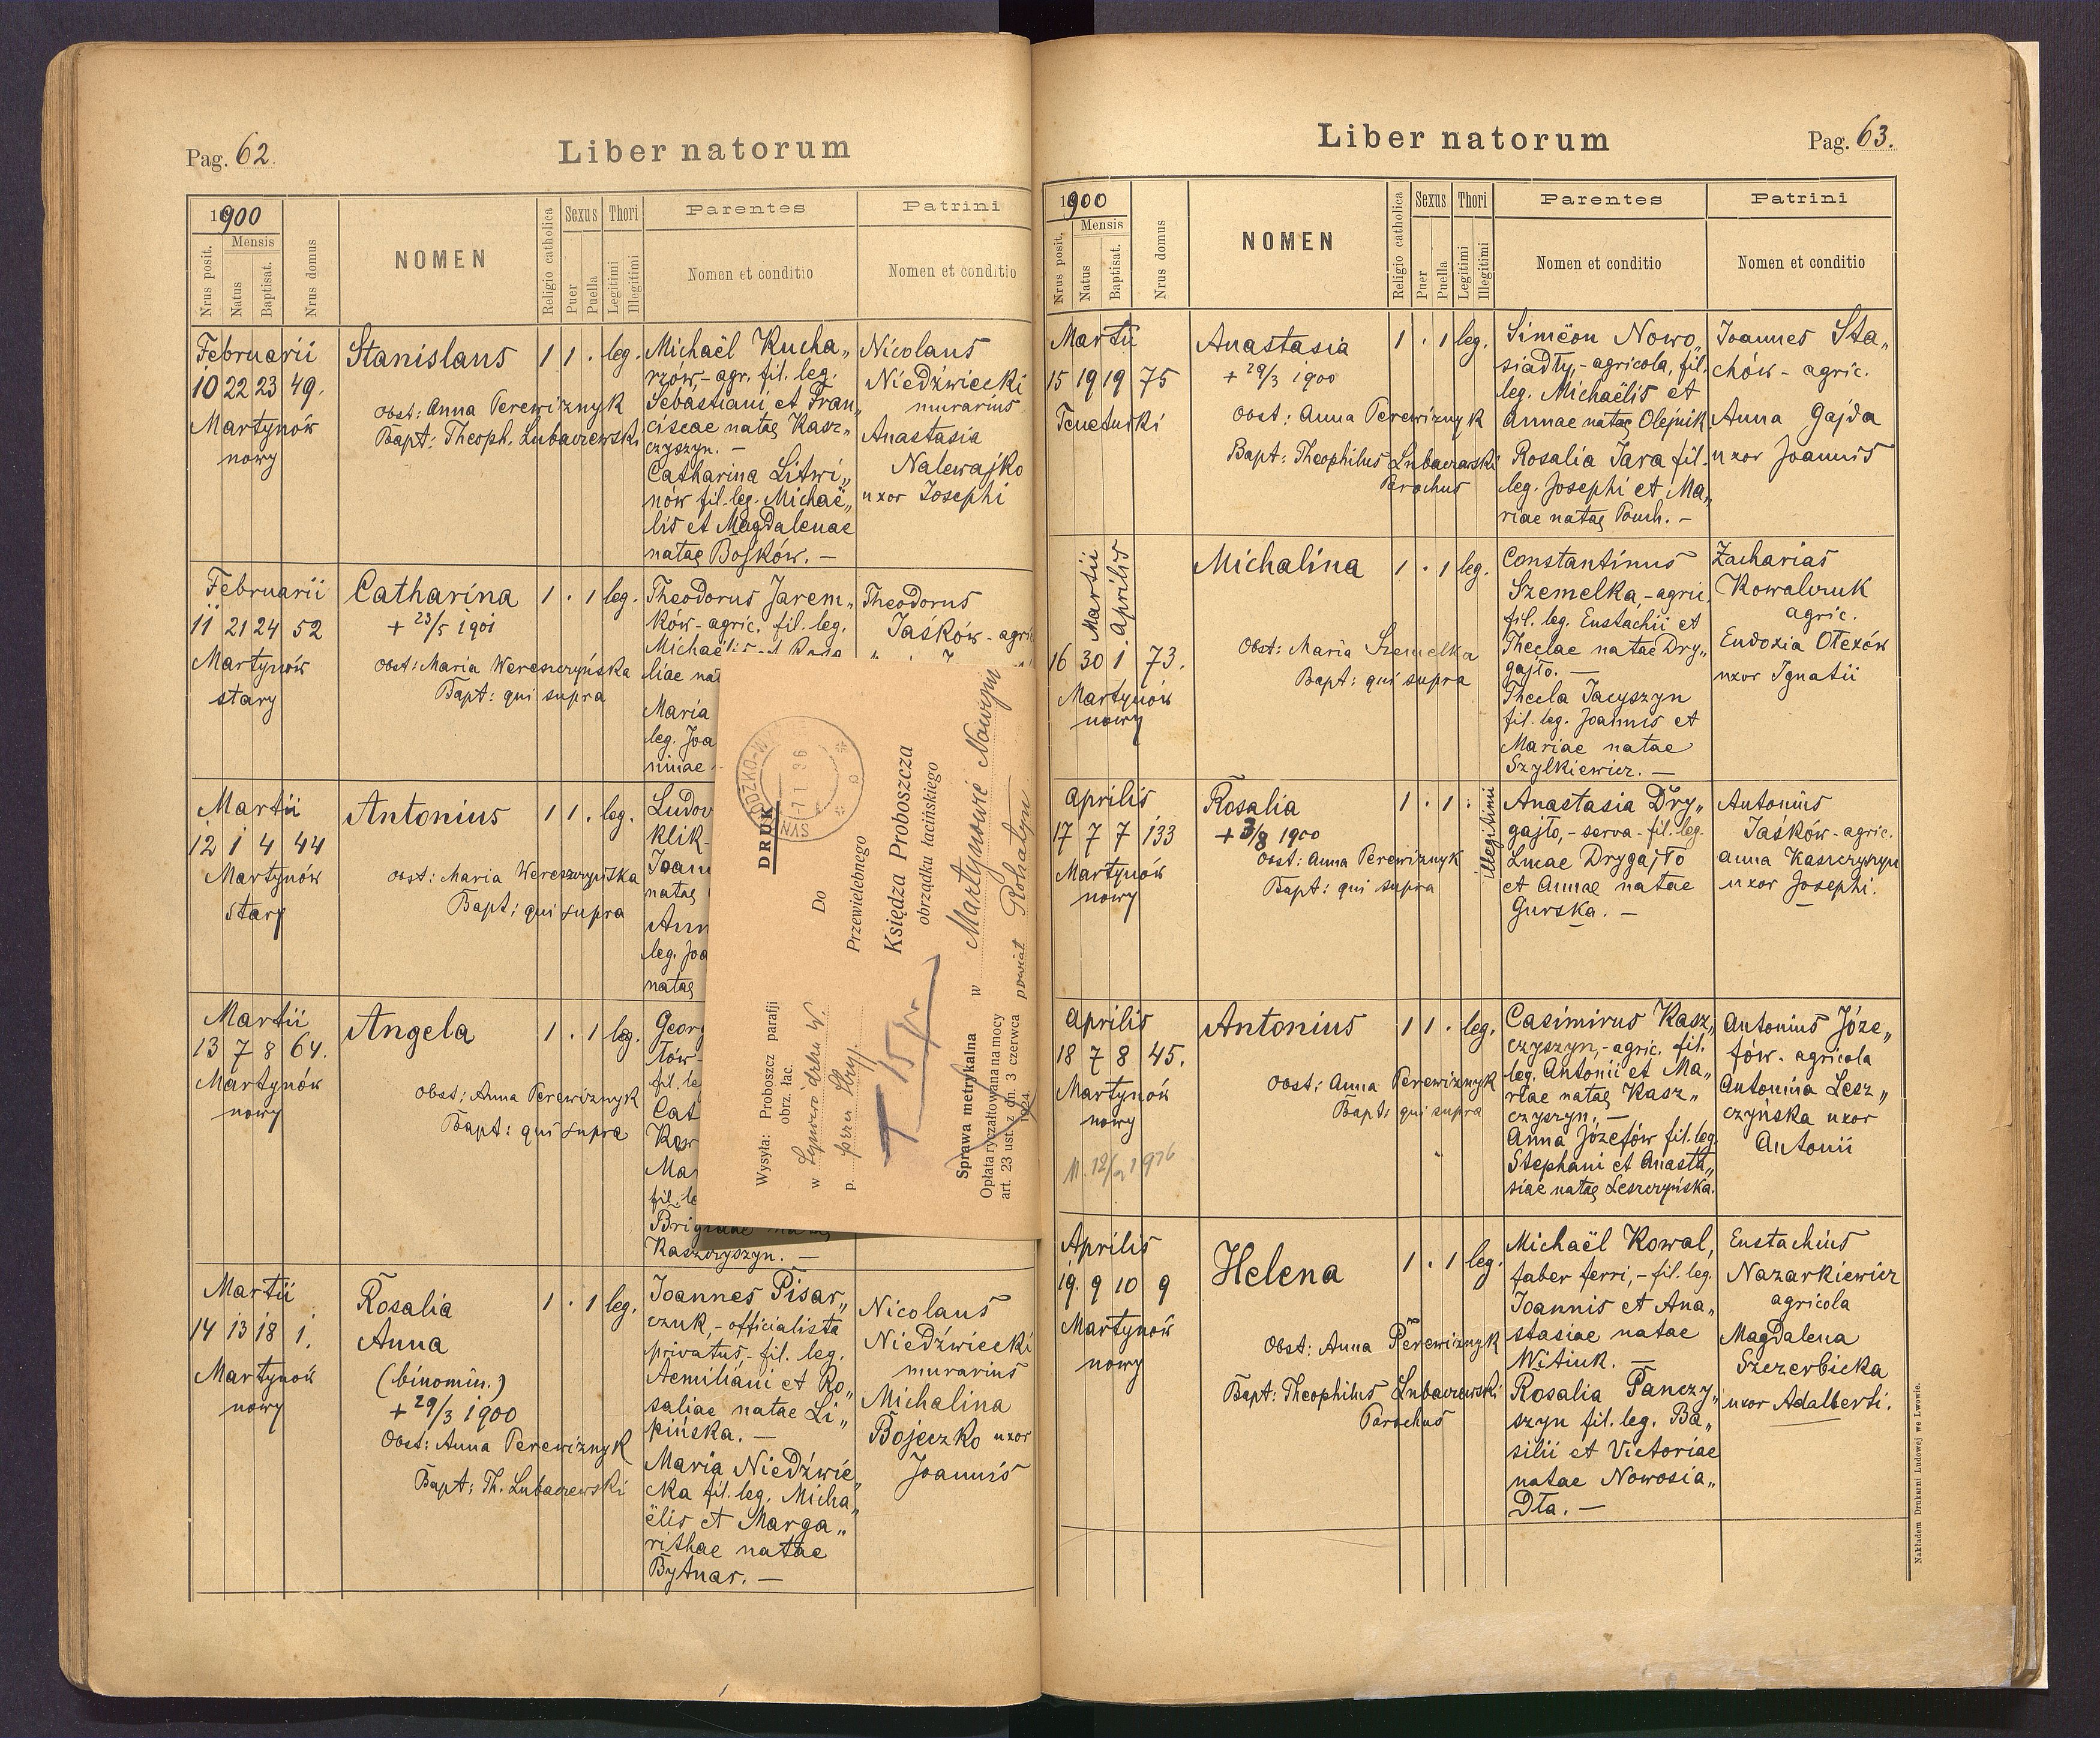 Pag. 62.
Liber natorum
1900
Nrus posit.
Mensis
Natus
Baptisat.
Nrus domus
NOMEN
Religio catholica
Sexus
Puer
Puella
Thori
Legitimi
Illegitimi
Parentes
Nomen et conditio
Patrini
Nomen et conditio
Februarii
10 22 23 49.
Martynów
nowy
Stanislaus
Obst: Anna Perewiznyk
Bapt: Theoph. Lubaczewski
1 1 . leg.
Michaël Kucha„
rzów,- agr. fil. leg.
Sebastiani et Fran„
ciscae natae Kasz„
czyszyn. —
Catharina Litwi„
nów fil. leg. Michaë„
lis et Magdalenae
natae Bojków. —
Nicolaus
Niedźwiecki
murarius
Anastasia
Nalewajko
uxor Josephi
Februarii
11 21 24 52
Martynów
stary
Catharina
+ 23/5 1901
Obst: Maria Wereszczyńska
Bapt: qui supra
1 . 1 leg.
Theodorus Jarem„
ków - agric. fil. leg.
Michaëlis et
liae nat
Maria
leg. Joa
ninae
Theodorus
Jaśków - agri
Martii
12 1 4 44
Martynów
stary
Antonius
Obst: Maria Wereszczyńska
Bapt: qui supra
1 1 . leg.
Ludov
klik-
Joan
natae
Ann
leg. Joa
natae
Martii
13 7 8 64.
Martynów
nowy
Angela
Obst: Anna Perewiznyk
Bapt: qui supra
1 . 1 leg.
Georg
łów-
fil. le
Cat
Kow
Mar
fil. le
Brigidae natae
Kaszczyszyn. —
Martii
14 13 18 1.
Martynów
nowy
Rosalia
Anna
(binomin.)
+ 29/3 1900
Obst: Anna Perewiznyk
Bapt: Th. Lubaczewski
1 . 1 leg.
Joannes Pisar„
czuk,- officialista
privatus,- fil. leg.
Aemiliani et Ro„
saliae natae Li„
pińska. —
Maria Niedźwie„
cka fil. leg. Micha„
ëlis et Marga„
rithae natae
Bytnar. —
Nicolaus
Niedźwiecki
murarius
Michalina
Bojeczko uxor
Joannis
DRUK
Do
Przewielebnego
Księdza Proboszcza
obrządku łacińskiego
w Martynowie Nowym
powiat Rohatyn
Wysyła: Proboszcz parafji
obrz. łac.
w
p.
T 15 gr
Sprawa metrykalna
Opłata ryczałtowana na mocy
art. 23 ust. z dn. 3 czerwca
1924.
Liber natorum
Pag. 63.
1900
Nrus posit.
Mensis
Natus
Baptisat.
Nrus domus
NOMEN
Religio catholica
Sexus
Puer
Puella
Thori
Legitimi
Illegitimi
Parentes
Nomen et conditio
Patrini
Nomen et conditio
Martii
15 19 19 75
Tenetniki
Anastasia
+ 29/3 1900
Obst: Anna Perewiznyk
Bapt: Theophilus Lubaczewski
Parochus
1 . 1 leg.
Simëon Nowo„
siadły,- agricola, fil.
leg. Michaëlis et
Annae natae Olejnik
Rosalia Jara fil.
leg. Josephi et Ma„
riae natae Pouch. —
Joannes Sta„
chów - agric.
Anna Gajda
uxor Joannis
Martii
Aprilis
16 30 1 73.
Martynów
nowy
Michalina
Obst: Maria Szemelka
Bapt: qui supra
1 . 1 leg.
Constantinus
Szemelka - agric.
fil. leg. Eustachii et
Theclae natae Dry„
gajło. —
Thecla Jacyszyn
fil. leg. Joannis et
Mariae natae
Szylkiewicz. —
Zacharias
Kowalczuk
agric.
Eudoxia Ołexów
uxor Ignatii
Aprilis
17 7 7 133
Martynów
nowy
Rosalia
+ 3/8 1900
Obst: Anna Perewiznyk
Bapt: qui supra
1 . 1 .
illegitimi
Anastasia Dry„
gajło,- serva - fil. leg.
Lucae Drygajło
et Annae natae
Gurska. —
Antonius
Jaśków - agric.
Anna Kaszczyszyn
uxor Josephi.
Aprilis
18 7 8 45.
Martynów
nowy
Antonius
Obst: Anna Perewiznyk
Bapt: qui supra
1 1 . leg.
Casimirus Kasz„
czyszyn,- agric. fil.
leg. Antonii et Ma„
riae natae Kasz„
czyszyn. —
Anna Józefów fil. leg.
Stephani et Anasta„
siae natae Leszczyńska.
Antonius Józe„
fów - agricola
Antonina Lesz„
czyńska uxor
Antonii
Aprilis
19. 9 10 9
Martynów
nowy
Helena
Obst: Anna Perewiznyk
Bapt: Theophilus Lubaczewski
Parochus
1 . 1 leg.
Michaël Kowal,
faber ferri,- fil. leg.
Joannis et Ana„
stasiae natae
Witiuk. —
Rosalia Panczy„
szyn fil. leg. Ba„
silii et Victoriae
natae Nowosia„
dła. —
Eustachius
Nazarkiewicz
agricola
Magdalena
Szczerbicka
uxor Adalberti.
Nakładem Drukarni Ludowej we Lwowie.